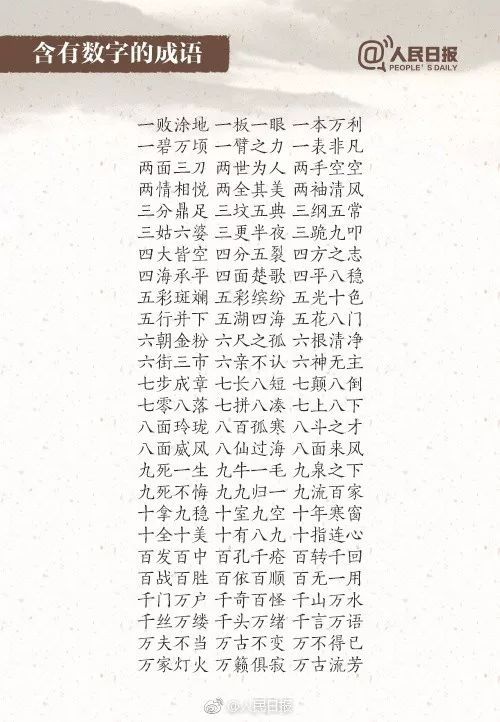 含有数字的成语
@人民日报
PEOPLE'S DAILY
一败涂地 一板一眼 一本万利
一碧万顷 一臂之力 一表非凡
两面三刀 两世为人 两手空空
两情相悦 两全其美 两袖清风
三分鼎足 三坟五典 三纲五常
三姑六婆 三更半夜 三跪九叩
四大皆空 四分五裂 四方之志
四海承平 四面楚歌 四平八稳
五彩斑斓 五彩缤纷 五光十色
五行并下 五湖四海 五花八门
六朝金粉 六尺之孤 六根清净
六街三市 六亲不认 六神无主
七步成章 七长八短 七颠八倒
七零八落 七拼八凑 七上八下
八面玲珑 八百孤寒 八斗之才
八面威风 八仙过海 八面来风
九死一生 九牛一毛 九泉之下
九死不悔 九九归一 九流百家
十拿九稳 十室九空 十年寒窗
十全十美 十有八九 十指连心
百发百中 百孔千疮 百转千回
百战百胜 百依百顺 百无一用
千门万户 千奇百怪 千山万水
千丝万缕 千头万绪 千言万语
万夫不当 万古不变 万不得已
万家灯火 万籁俱寂 万古流芳
@人民日报